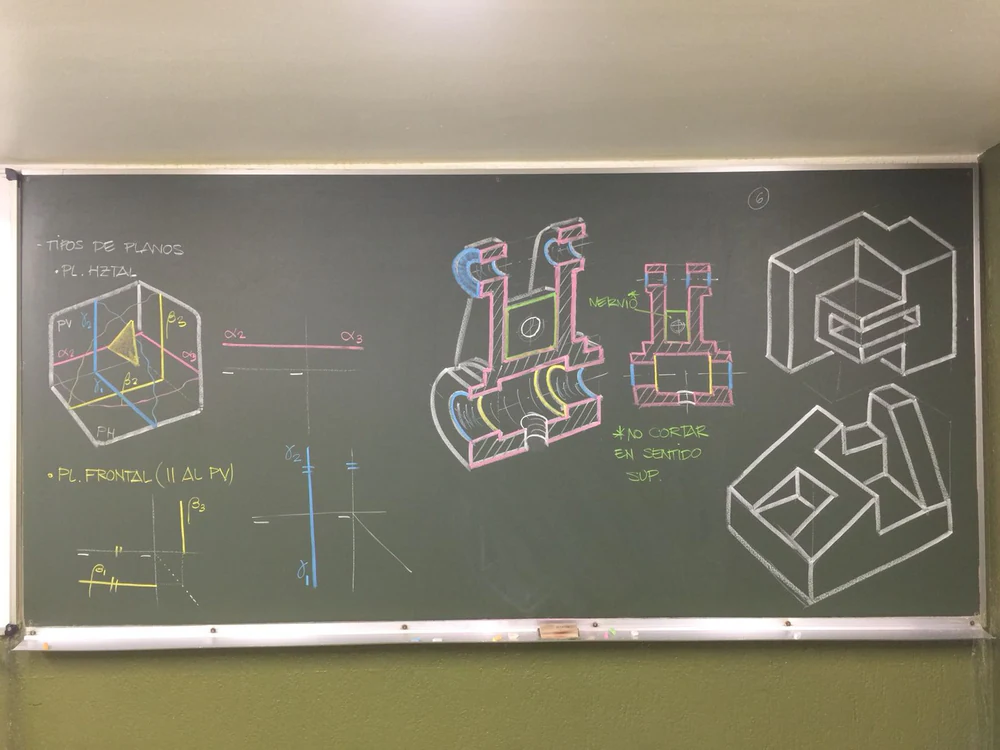 - TIPOS DE PLANOS
• PL. HZTAL
PV
γ2
β3
α2
α3
γ1
β2
PH
α2
α3
• PL. FRONTAL (II AL PV)
β3
β1
γ2
γ1
NERVIO*
*NO CORTAR
EN SENTIDO
SUP.
6